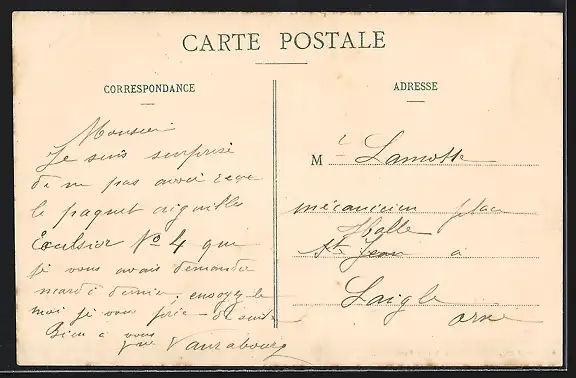 CARTE POSTALE
CORRESPONDANCE
ADRESSE
Monsieur
Je suis surprise
de ne pas avoir reçu
le paquet aiguilles
Excelsior No 4 que
je vous avais demandé
mardi dernier, envoyez le
moi je vous prie de suite
Bien à vous
Vaurabourg
M r Lamotte
mécanicien place
Halle
St Jean à
Laigle
Orne